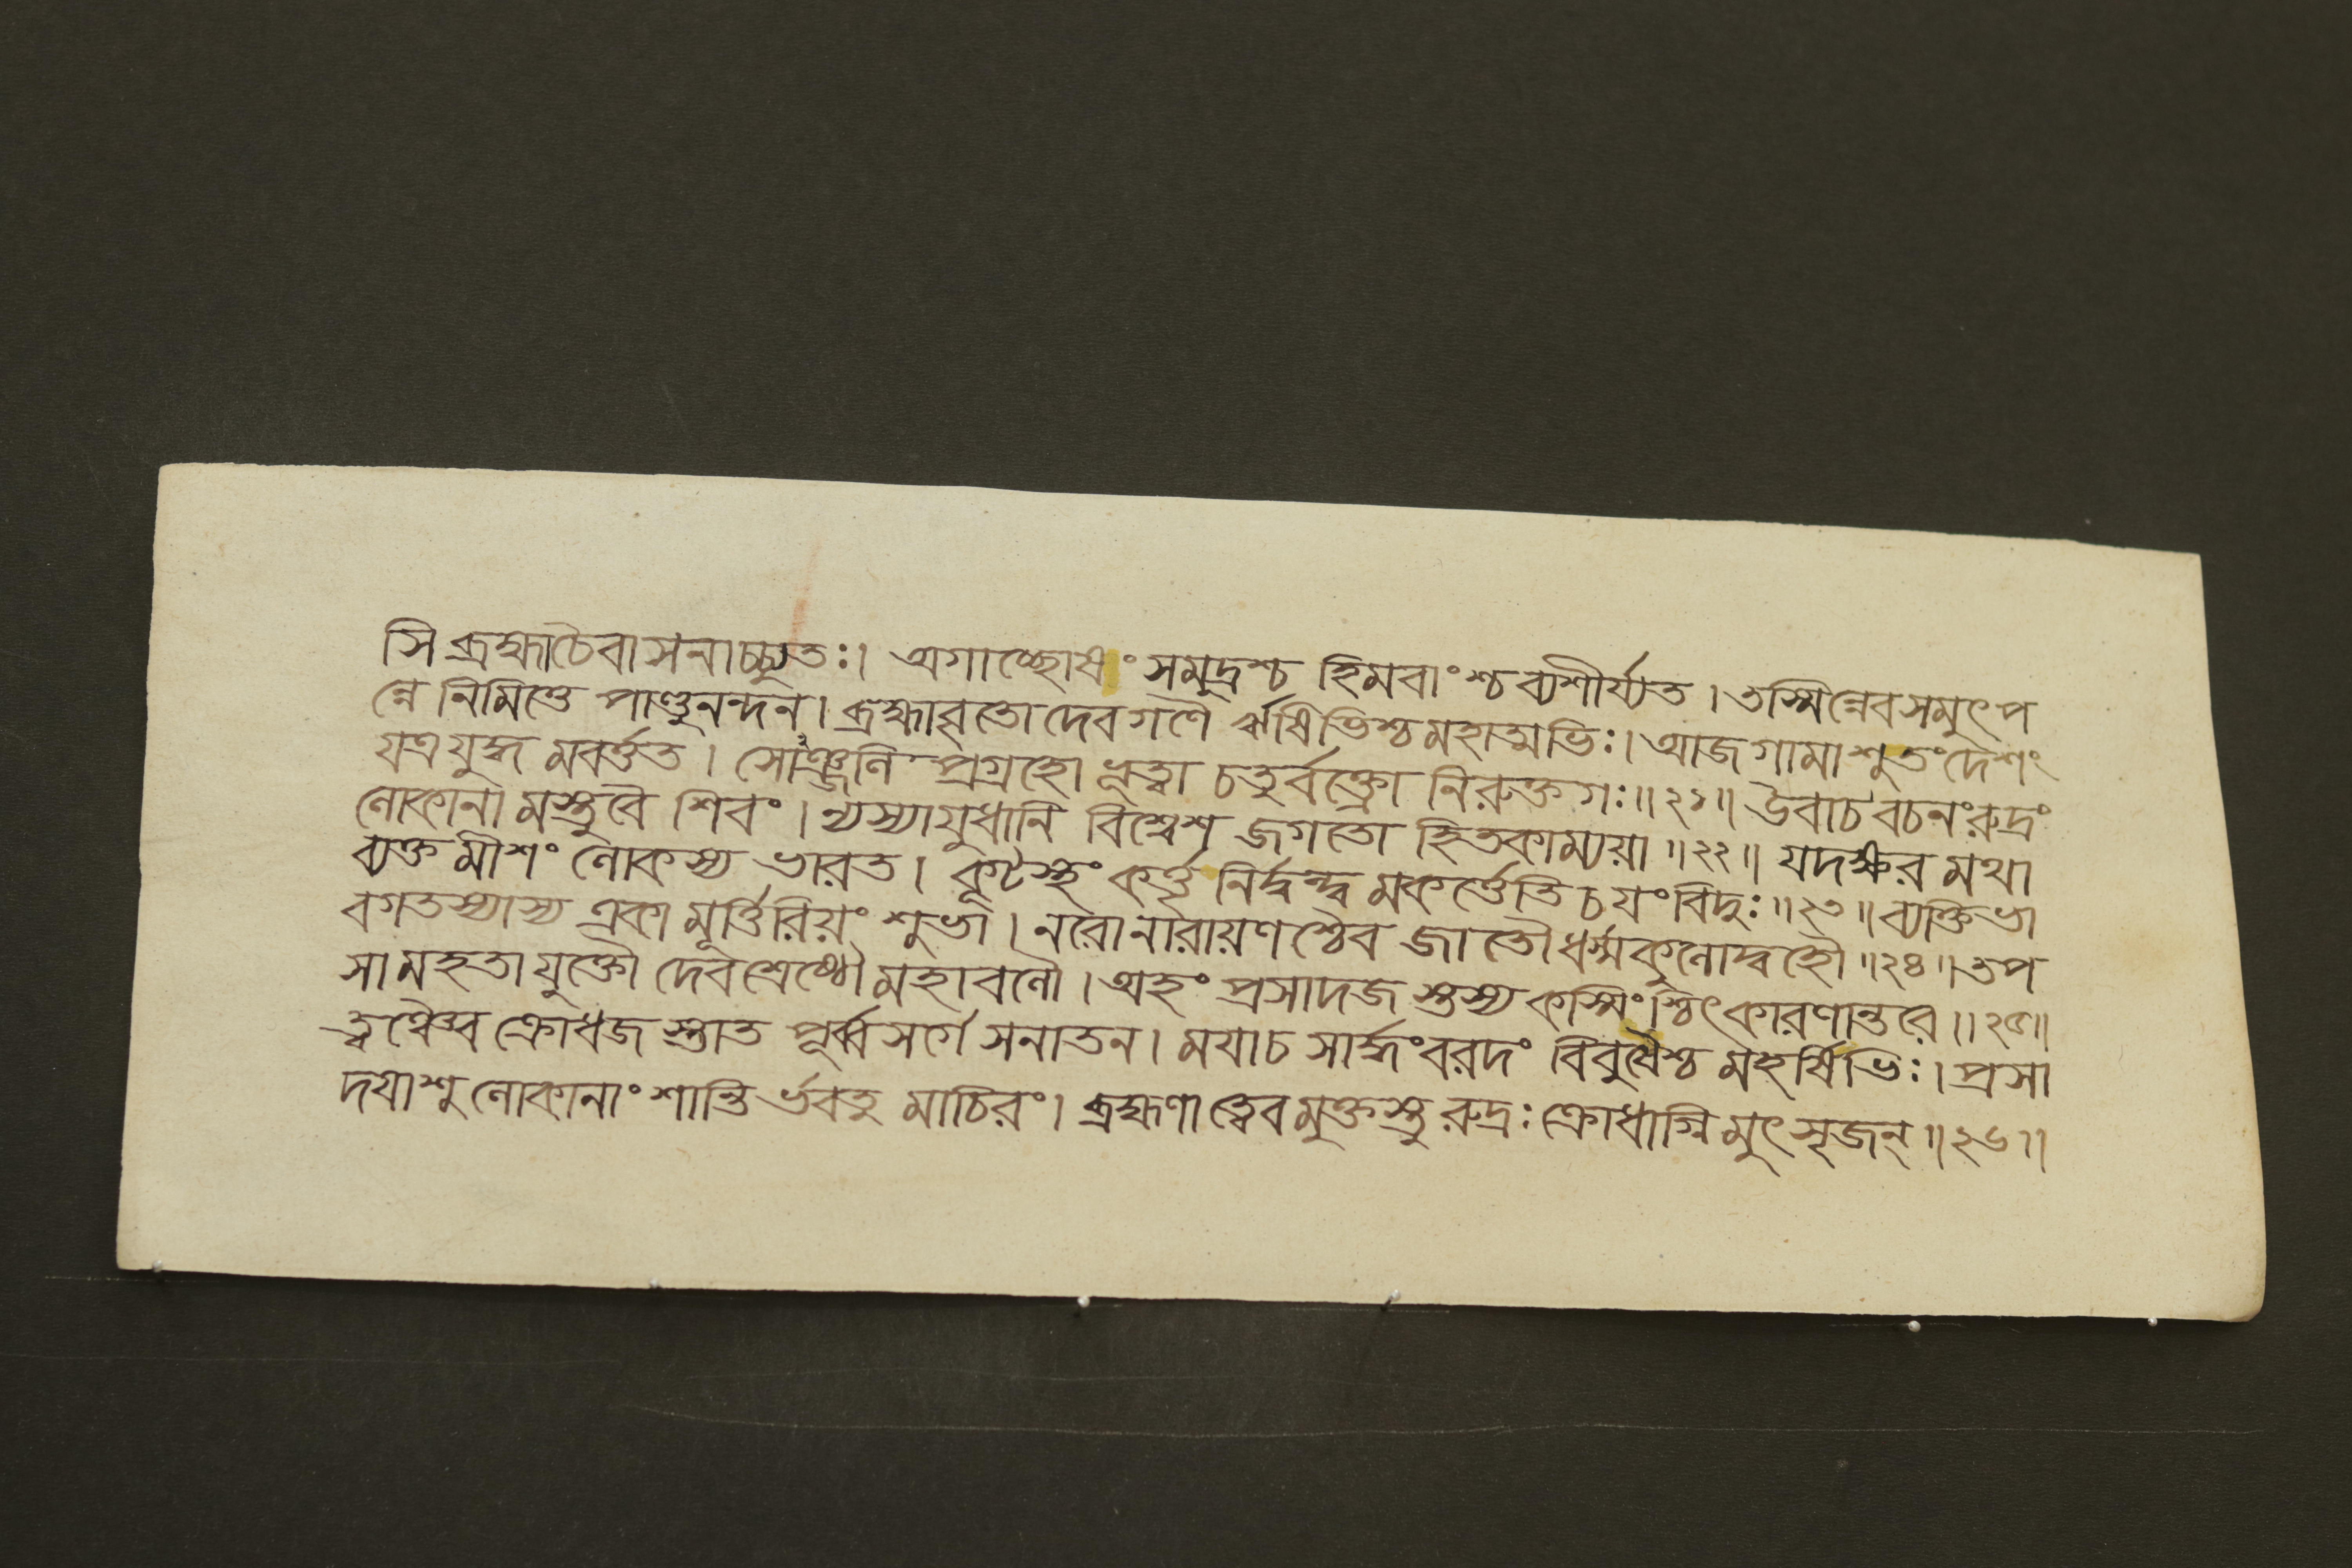 সি ব্রহ্মাচৈবাসনাচ্চ্যুতঃ। অগাচ্ছোষং সমুদ্রশ্চ হিমবাংশ্চব্যশীর্য্যত। তস্মিন্নেবসমুৎপ
ন্নে নিমিত্তে পাণ্ডুনন্দন। ব্রহ্মাবৃতো দেবগণৈ র্ঋষিভিশ্চমহাত্মভিঃ। আজগামাশুতংদেশং
যত্রযুদ্ধ মবর্ত্তত। সোঞ্জনি প্রগ্রহো ধৃত্বা চতুর্বক্ত্রো নিরুক্তগঃ॥২১॥ উবাচবচনংরুদ্রং
লোকানা মস্তুবৈ শিবং। ন্যস্যাযুধানি বিশ্বেশ জগতো হিতকাম্যয়া॥২২॥ যদক্ষর মথা
ব্যক্ত মীশং লোকস্য ভারত। কূটস্থং কর্ত্তৃ নির্দ্বন্দ্ব মকর্ত্তেতি চ যংবিদুঃ॥২৩॥ ব্যক্তিভা
বগতস্যাস্য একা মূর্ত্তিরিয়ং শুভা। নরোনারায়ণশ্চৈব জাতৌধর্ম্মকুলোদ্বহৌ॥২৪॥ তপ
সা মহতা যুক্তৌ দেবশ্রেষ্ঠৌ মহাবলৌ। অহং প্রসাদজ স্তস্য কস্মিংশ্চিৎকারণান্তরে॥২৫॥
ত্বঞ্চৈব ক্রোধজ স্তাত পূর্ব্বসর্গে সনাতন। ময়াচ সার্দ্ধংবরদং বিবুধৈশ্চ মহর্ষিভিঃ। প্রসা
দয়াশু লোকানাং শান্তি র্ভবতু মাচিরং। ব্রহ্মণা ত্বেবমুক্তস্তু রুদ্রঃ ক্রোধাগ্নিমুৎসৃজন্॥২৬॥